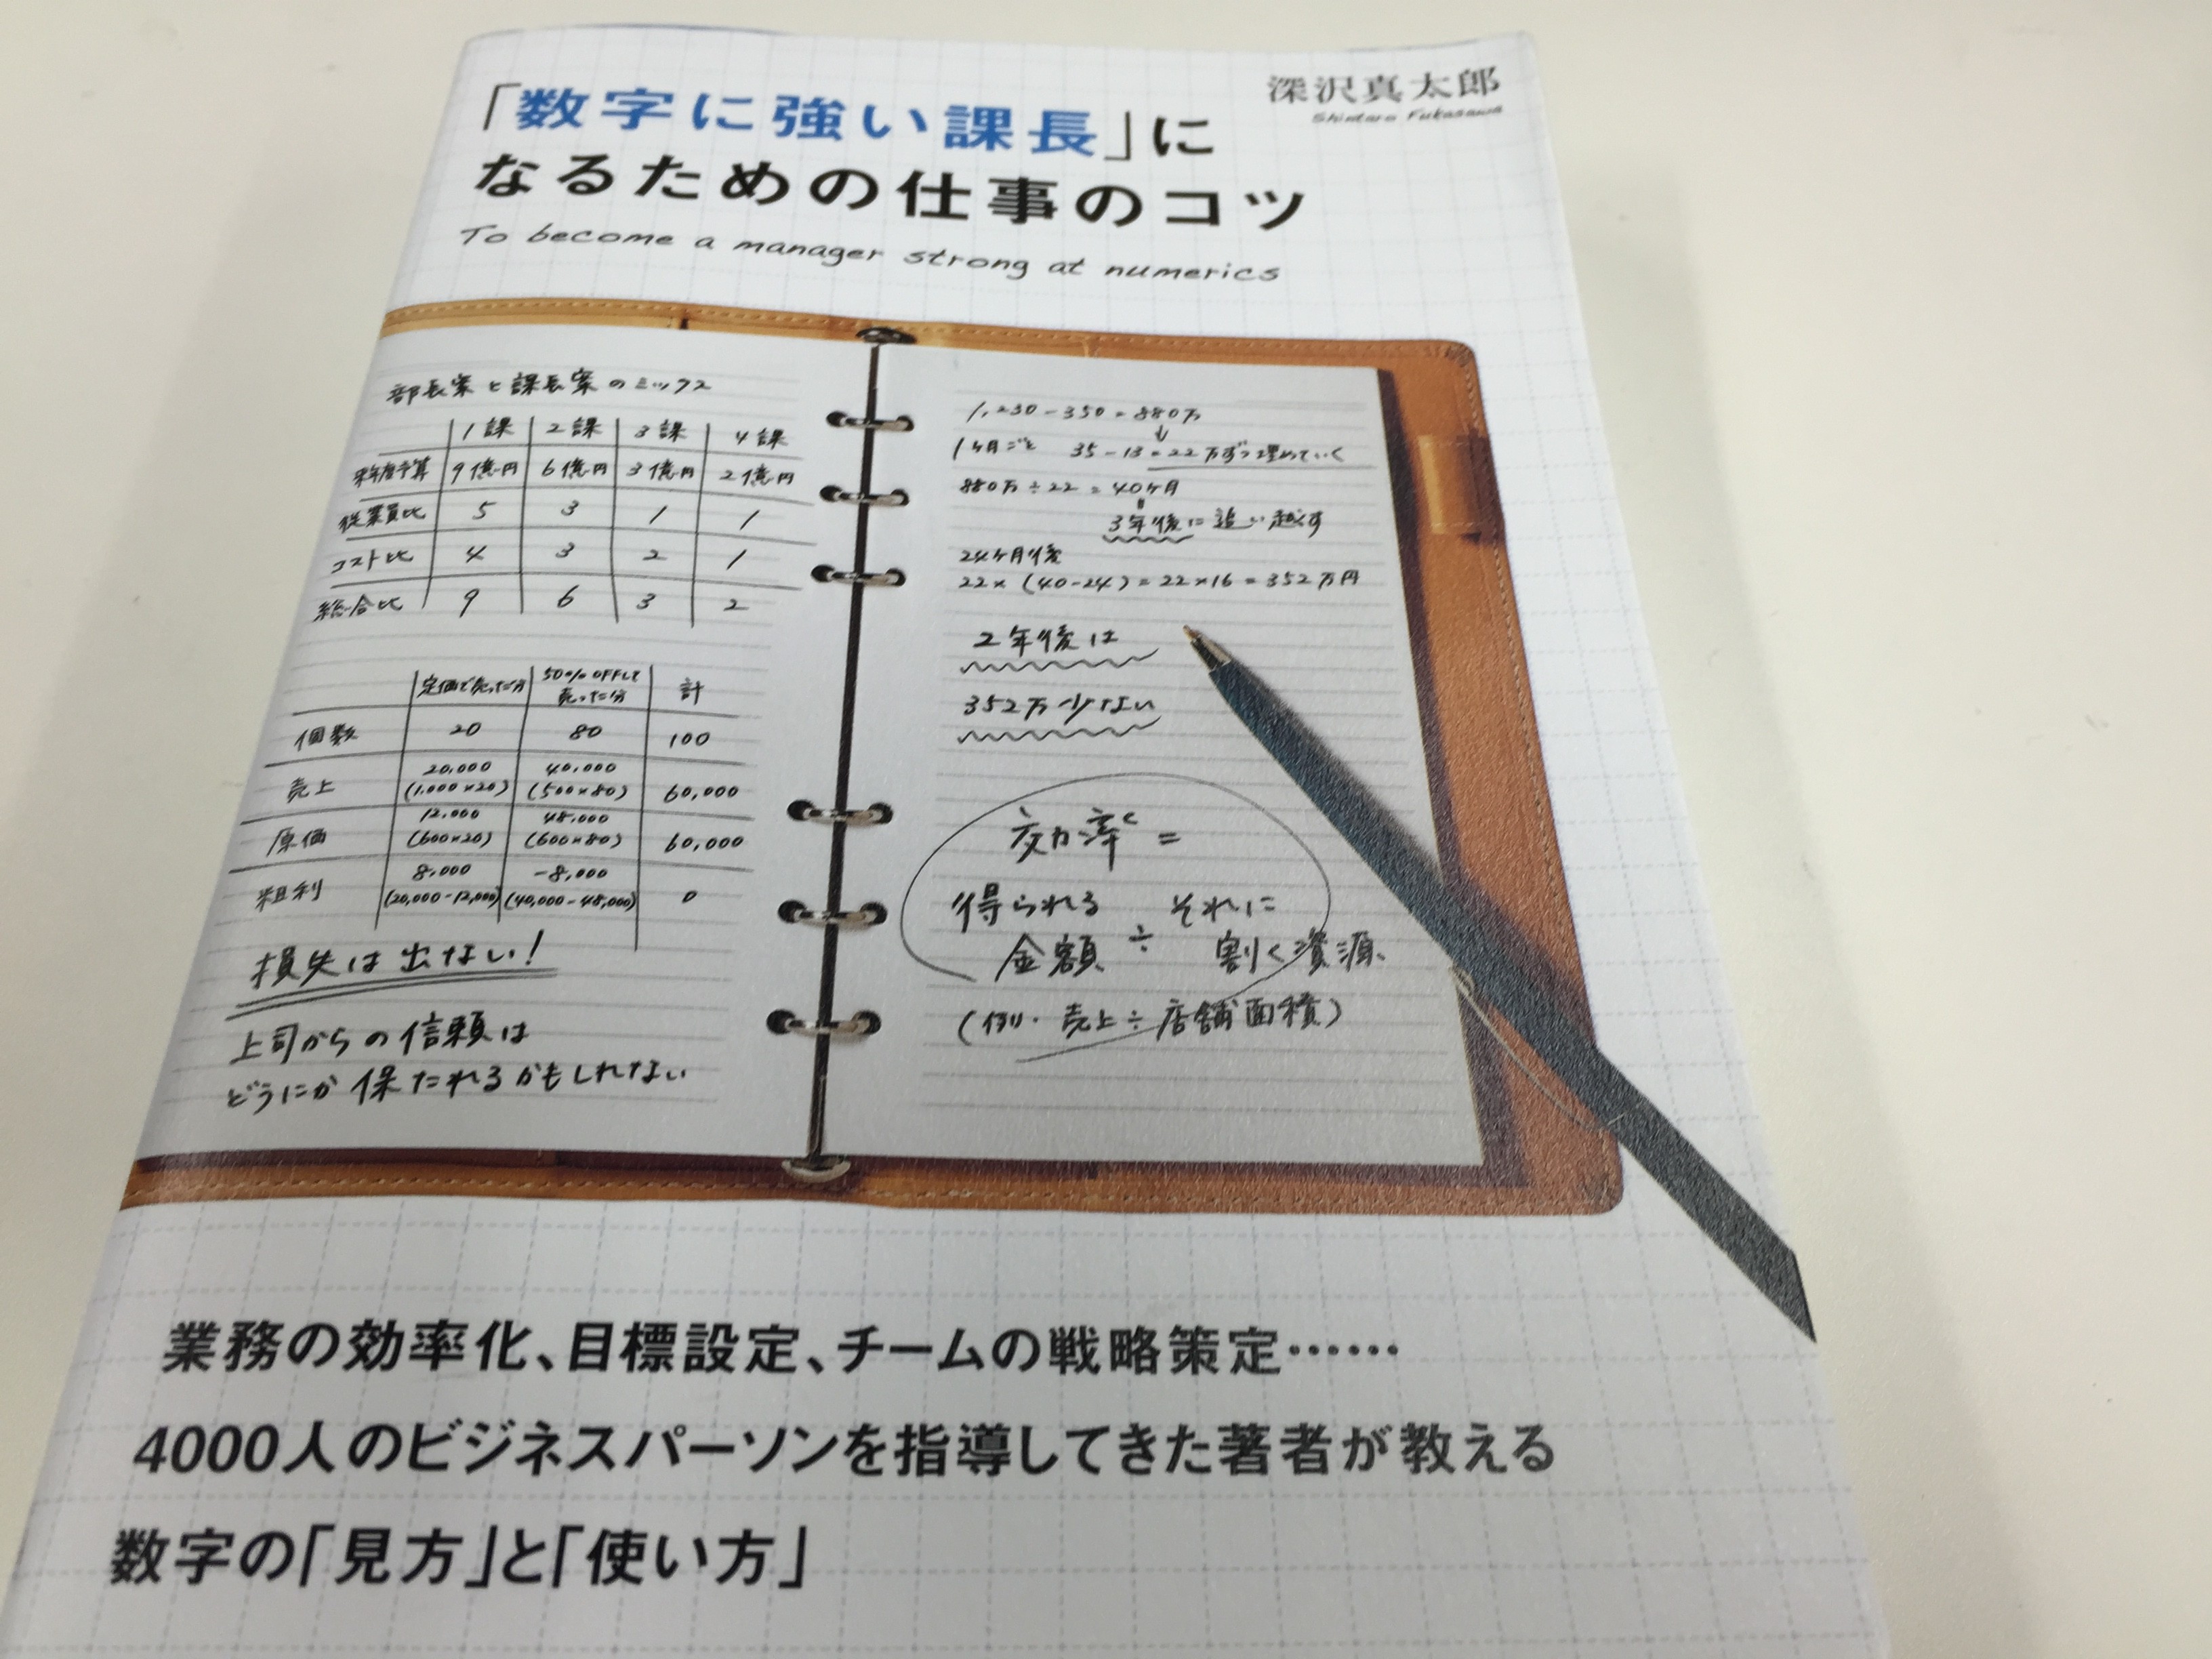 深沢真太郎
Shintaro Fukasawa
「数字に強い課長」に
なるための仕事のコツ
To become a manager strong at numerics
部長案と課長案のミックス
1課 2課 3課 4課
来年度予算 9億円 6億円 3億円 2億円
従業員比 5 3 1 1
コスト比 4 3 2 1
総合比 9 6 3 2
定価で売った分 50%OFFして売った分 計
個数 20 80 100
売上 20,000 (1,000×20) 40,000 (500×80) 60,000
原価 12,000 (600×20) 48,000 (600×80) 60,000
粗利 8,000 (20,000-12,000) -8,000 (40,000-48,000) 0
損失は出ない!
上司からの信頼は
どうにか保たれるかもしれない
1,230-350=880万
↓
1ヶ月ごと 35-13=22万ずつ埋めていく
880万÷22=40ヶ月
3年後に追い越す
24ヶ月後
22×(40-24)=22×16=352万円
2年後は
352万少ない
効率=
得られる金額÷それに割く資源
(例.売上÷店舗面積)
業務の効率化、目標設定、チームの戦略策定……
4000人のビジネスパーソンを指導してきた著者が教える
数字の「見方」と「使い方」